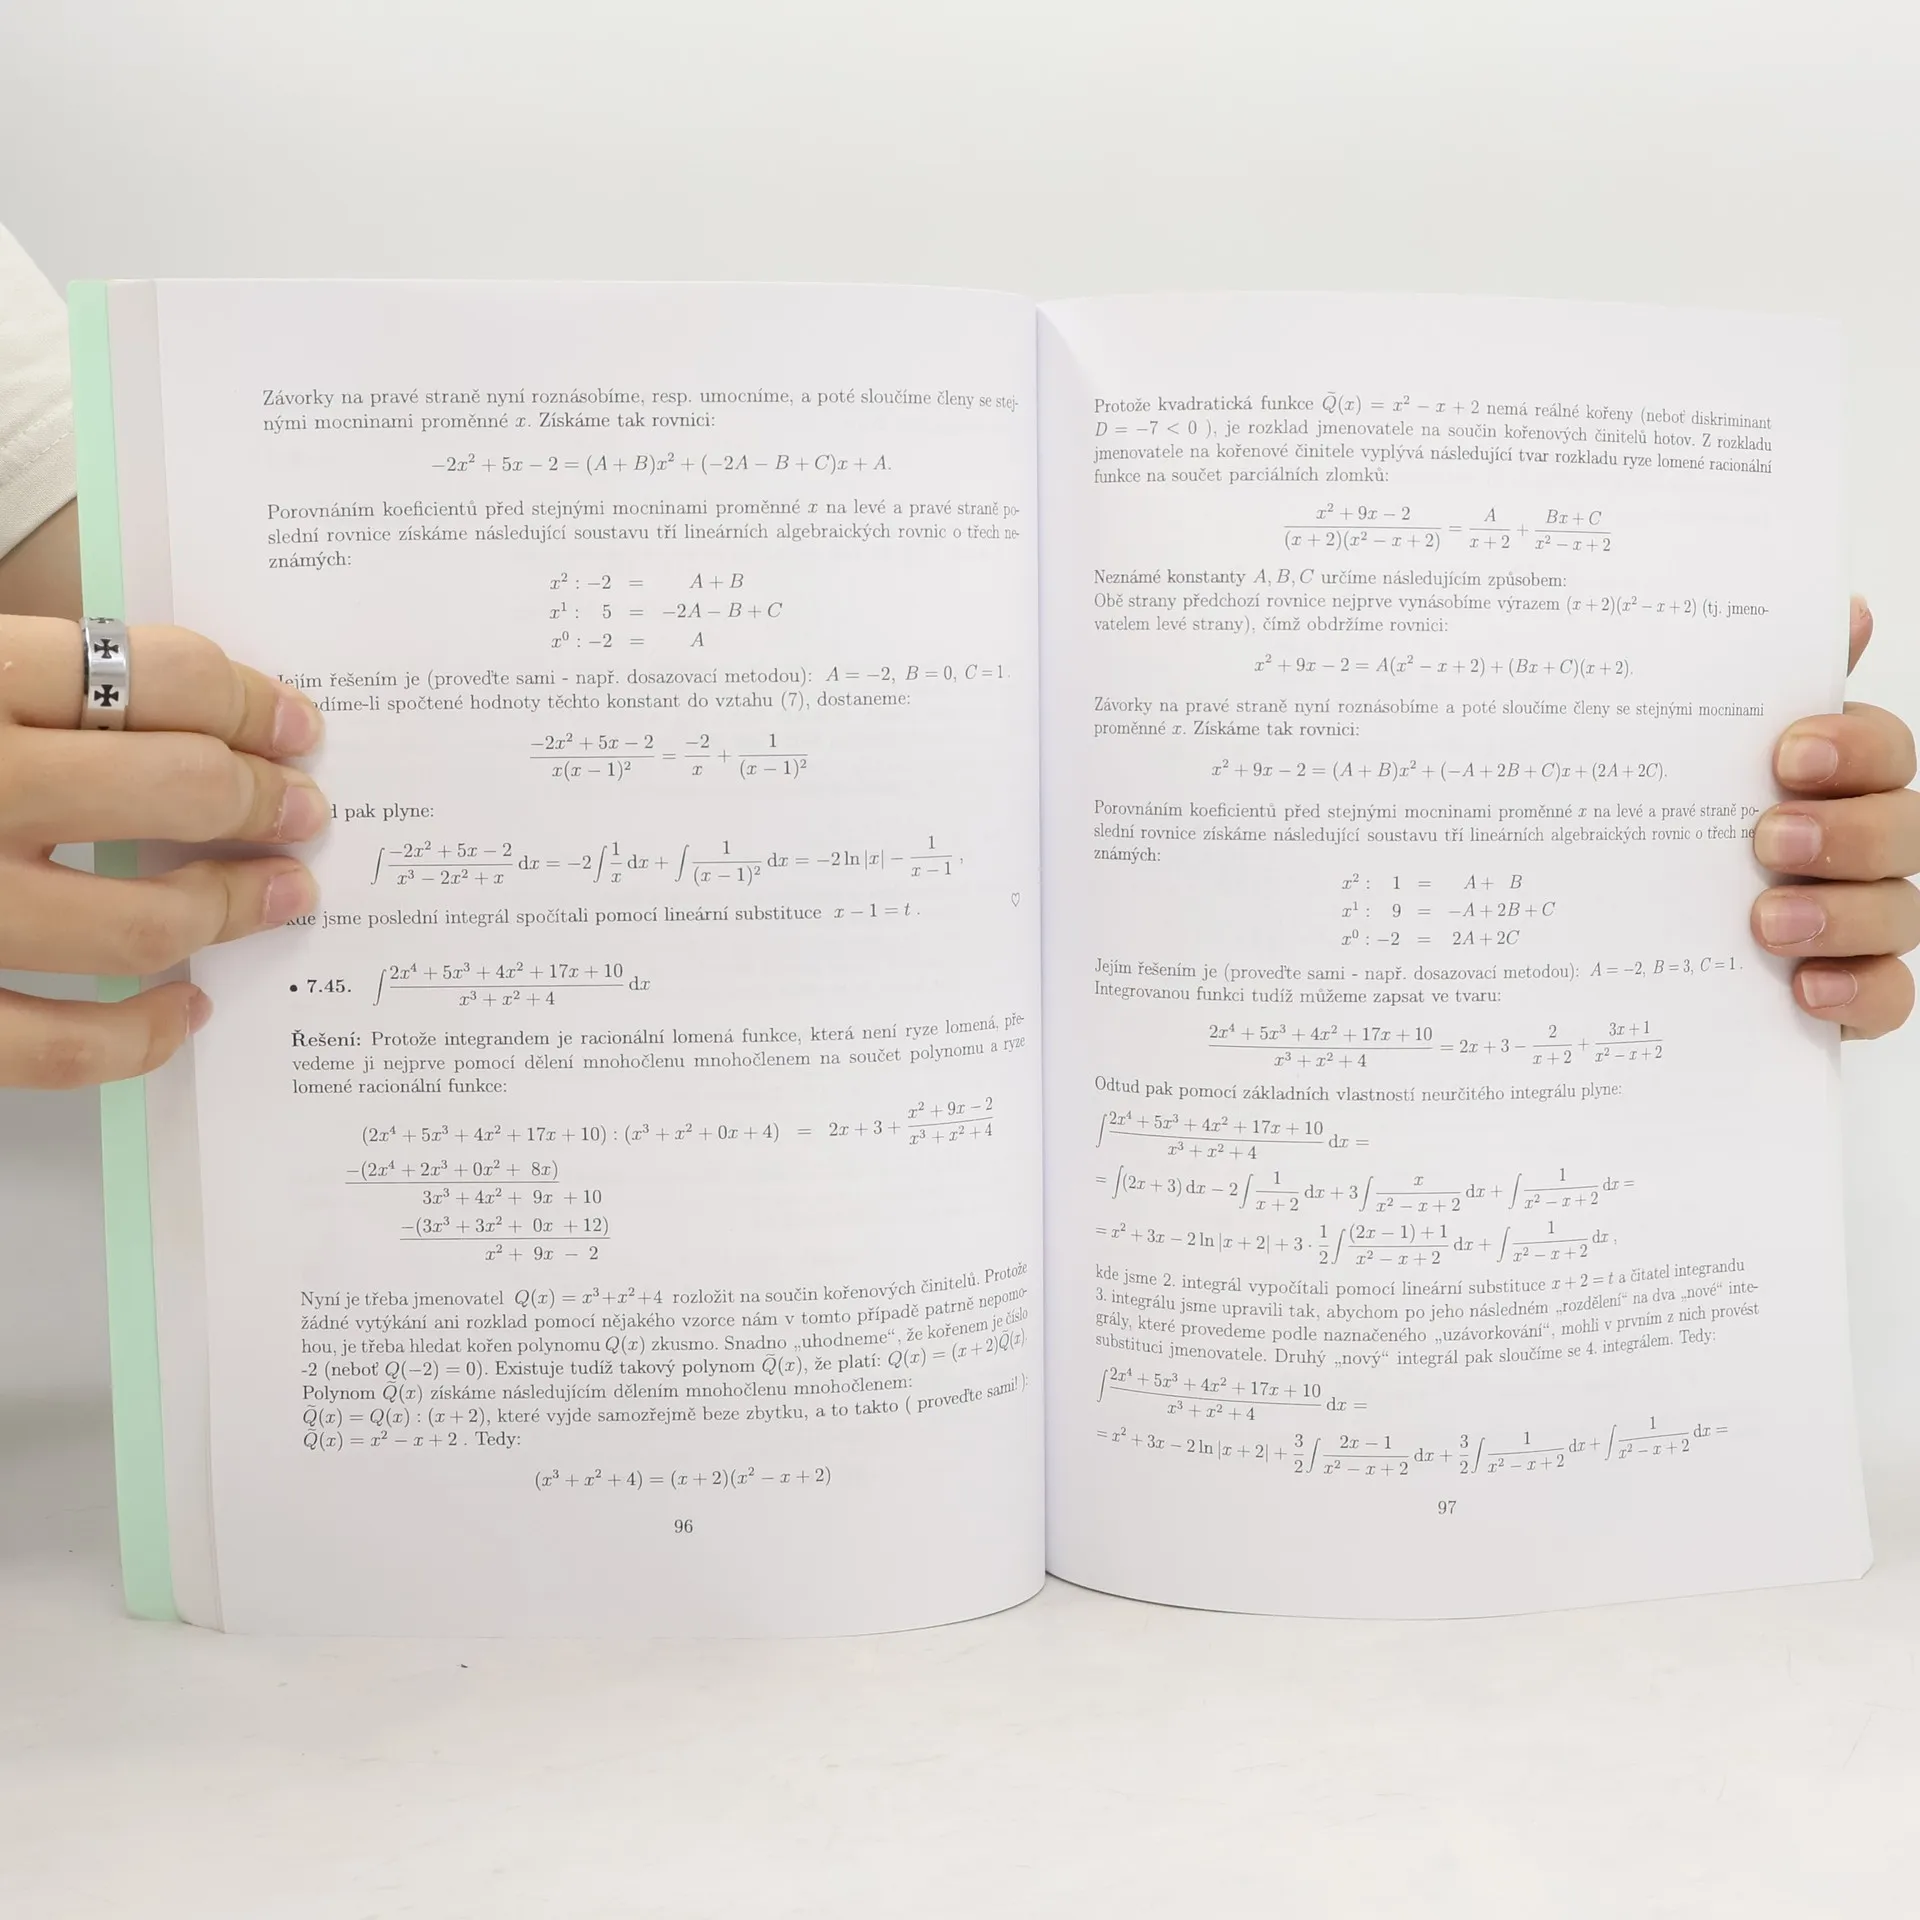 Závorky na pravé straně nyní roznásobíme, resp. umocníme, a poté sloučíme členy se stej-
nými mocninami proměnné x. Získáme tak rovnici:
−2x² + 5x − 2 = (A + B)x² + (−2A − B + C)x + A.
Porovnáním koeficientů před stejnými mocninami proměnné x na levé a pravé straně po-
slední rovnice získáme následující soustavu tří lineárních algebraických rovnic o třech ne-
známých:
x² : −2 = A + B
x¹ : 5 = −2A − B + C
x⁰ : −2 = A
Jejím řešením je (proveďte sami - např. dosazovací metodou): A = −2, B = 0, C = 1.
díme-li spočtené hodnoty těchto konstant do vztahu (7), dostaneme:
(−2x² + 5x − 2)/(x(x − 1)²) = −2/x + 1/(x − 1)²
pak plyne:
∫ (−2x² + 5x − 2)/(x³ − 2x² + x) dx = −2 ∫ 1/x dx + ∫ 1/(x − 1)² dx = −2 ln |x| − 1/(x − 1) ,
kde jsme poslední integrál spočítali pomocí lineární substituce x − 1 = t . ♡
• 7.45. ∫ (2x⁴ + 5x³ + 4x² + 17x + 10)/(x³ + x² + 4) dx
Řešení: Protože integrandem je racionální lomená funkce, která není ryze lomená, pře-
vedeme ji nejprve pomocí dělení mnohočlenu mnohočlenem na součet polynomu a ryze
lomené racionální funkce:
(2x⁴ + 5x³ + 4x² + 17x + 10) : (x³ + x² + 0x + 4) = 2x + 3 + (x² + 9x − 2)/(x³ + x² + 4)
−(2x⁴ + 2x³ + 0x² + 8x)
3x³ + 4x² + 9x + 10
−(3x³ + 3x² + 0x + 12)
x² + 9x − 2
Nyní je třeba jmenovatel Q(x) = x³+x²+4 rozložit na součin kořenových činitelů. Protože
žádné vytýkání ani rozklad pomocí nějakého vzorce nám v tomto případě patrně nepomo-
hou, je třeba hledat kořen polynomu Q(x) zkusmo. Snadno „uhodneme“, že kořenem je číslo
-2 (neboť Q(−2) = 0). Existuje tudíž takový polynom Q̃(x), že platí: Q(x) = (x + 2)Q̃(x).
Polynom Q̃(x) získáme následujícím dělením mnohočlenu mnohočlenem:
Q̃(x) = Q(x) : (x + 2), které vyjde samozřejmě beze zbytku, a to takto ( proveďte sami! ):
Q̃(x) = x² − x + 2 . Tedy:
(x³ + x² + 4) = (x + 2)(x² − x + 2)
96
Protože kvadratická funkce Q̃(x) = x² − x + 2 nemá reálné kořeny (neboť diskriminant
D = −7 < 0 ), je rozklad jmenovatele na součin kořenových činitelů hotov. Z rozkladu
jmenovatele na kořenové činitele vyplývá následující tvar rozkladu ryze lomené racionální
funkce na součet parciálních zlomků:
(x² + 9x − 2)/((x + 2)(x² − x + 2)) = A/(x + 2) + (Bx + C)/(x² − x + 2)
Neznámé konstanty A, B, C určíme následujícím způsobem:
Obě strany předchozí rovnice nejprve vynásobíme výrazem (x + 2)(x² − x + 2) (tj. jmeno-
vatelem levé strany), čímž obdržíme rovnici:
x² + 9x − 2 = A(x² − x + 2) + (Bx + C)(x + 2).
Závorky na pravé straně nyní roznásobíme a poté sloučíme členy se stejnými mocninami
proměnné x. Získáme tak rovnici:
x² + 9x − 2 = (A + B)x² + (−A + 2B + C)x + (2A + 2C).
Porovnáním koeficientů před stejnými mocninami proměnné x na levé a pravé straně po-
slední rovnice získáme následující soustavu tří lineárních algebraických rovnic o třech ne
známých:
x² : 1 = A + B
x¹ : 9 = −A + 2B + C
x⁰ : −2 = 2A + 2C
Jejím řešením je (proveďte sami - např. dosazovací metodou): A = −2, B = 3, C = 1.
Integrovanou funkci tudíž můžeme zapsat ve tvaru:
(2x⁴ + 5x³ + 4x² + 17x + 10)/(x³ + x² + 4) = 2x + 3 − 2/(x + 2) + (3x + 1)/(x² − x + 2)
Odtud pak pomocí základních vlastností neurčitého integrálu plyne:
∫ (2x⁴ + 5x³ + 4x² + 17x + 10)/(x³ + x² + 4) dx =
= ∫(2x + 3) dx − 2 ∫ 1/(x + 2) dx + 3 ∫ x/(x² − x + 2) dx + ∫ 1/(x² − x + 2) dx =
= x² + 3x − 2 ln |x + 2| + 3 · 1/2 ∫ ((2x − 1) + 1)/(x² − x + 2) dx + ∫ 1/(x² − x + 2) dx ,
kde jsme 2. integrál vypočítali pomocí lineární substituce x + 2 = t a čitatel integrandu
3. integrálu jsme upravili tak, abychom po jeho následném „rozdělení“ na dva „nové“ inte-
grály, které provedeme podle naznačeného „uzávorkování“, mohli v prvním z nich provést
substituci jmenovatele. Druhý „nový“ integrál pak sloučíme se 4. integrálem. Tedy:
∫ (2x⁴ + 5x³ + 4x² + 17x + 10)/(x³ + x² + 4) dx =
= x² + 3x − 2 ln |x + 2| + 3/2 ∫ (2x − 1)/(x² − x + 2) dx + 3/2 ∫ 1/(x² − x + 2) dx + ∫ 1/(x² − x + 2) dx =
97